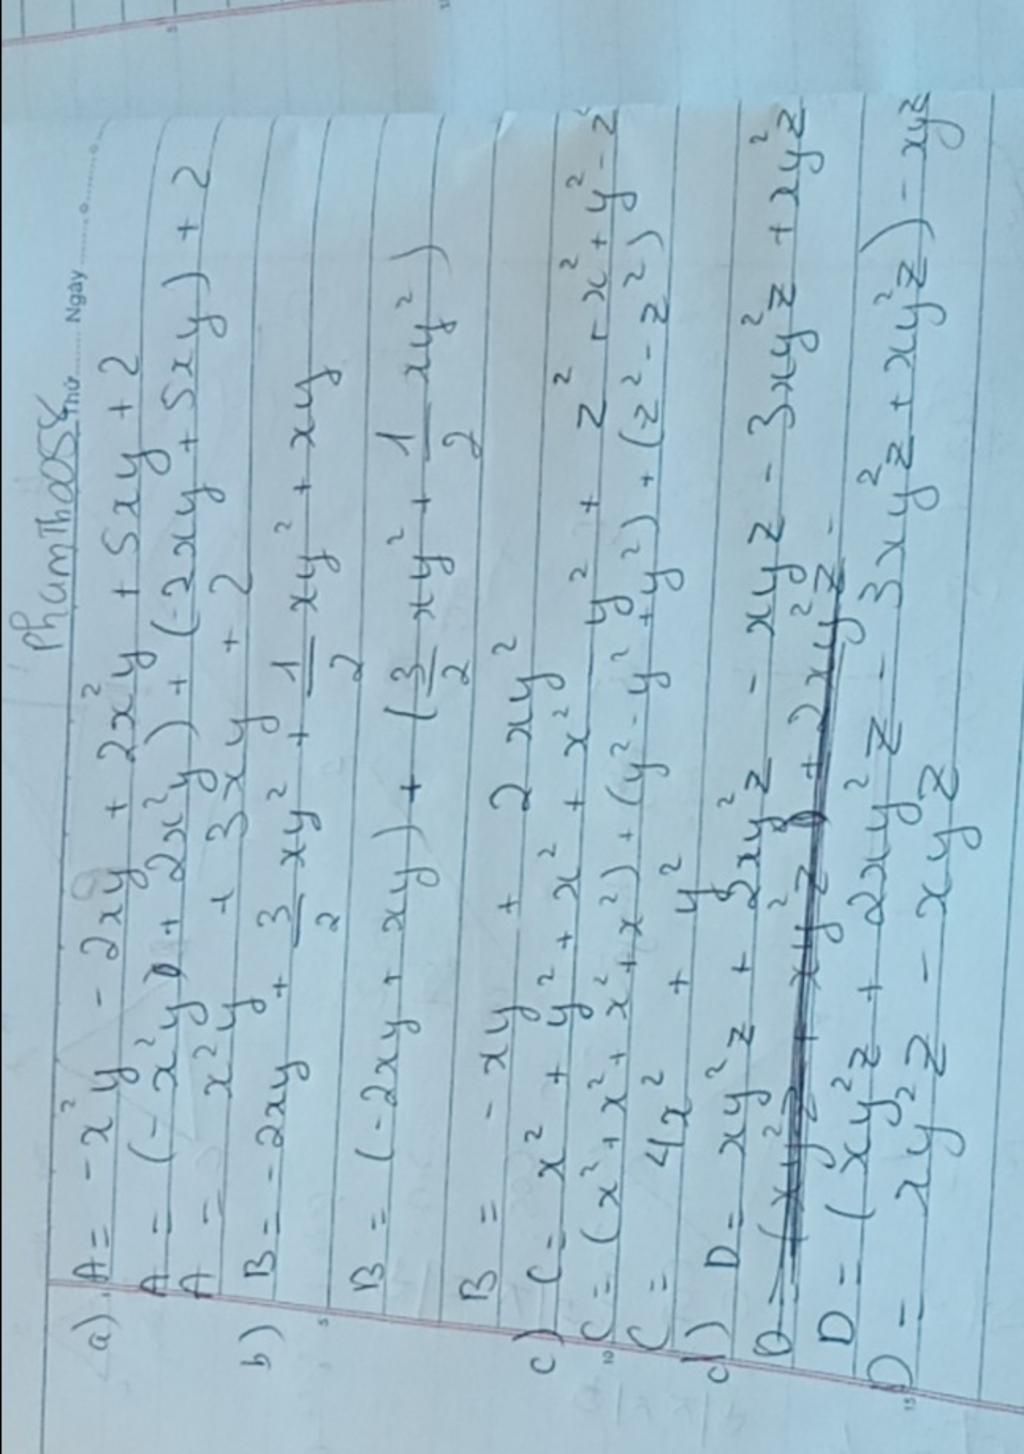 PhamThao58
Thứ ........ Ngày ........
a) A = -x²y - 2xy + 2x²y + 5xy + 2
A = (-x²y + 2x²y) + (-2xy + 5xy) + 2
A = x²y + 3xy + 2
b) B = -2xy + 3/2 xy² + 1/2 xy² + xy
B = (-2xy + xy) + (3/2 xy² + 1/2 xy²)
B = -xy + 2xy²
c) C = x² + y² + x² + x² - y² + z² + x² + y² - z²
C = (x² + x² + x² + x²) + (y² - y² + y²) + (z² - z²)
C = 4x² + y²
d) D = xy²z + 2xy²z - xyz - 3xy²z + xy²z
D = (xy²z + 2xy²z - 3xy²z + xy²z) - xyz
D = xy²z - xyz